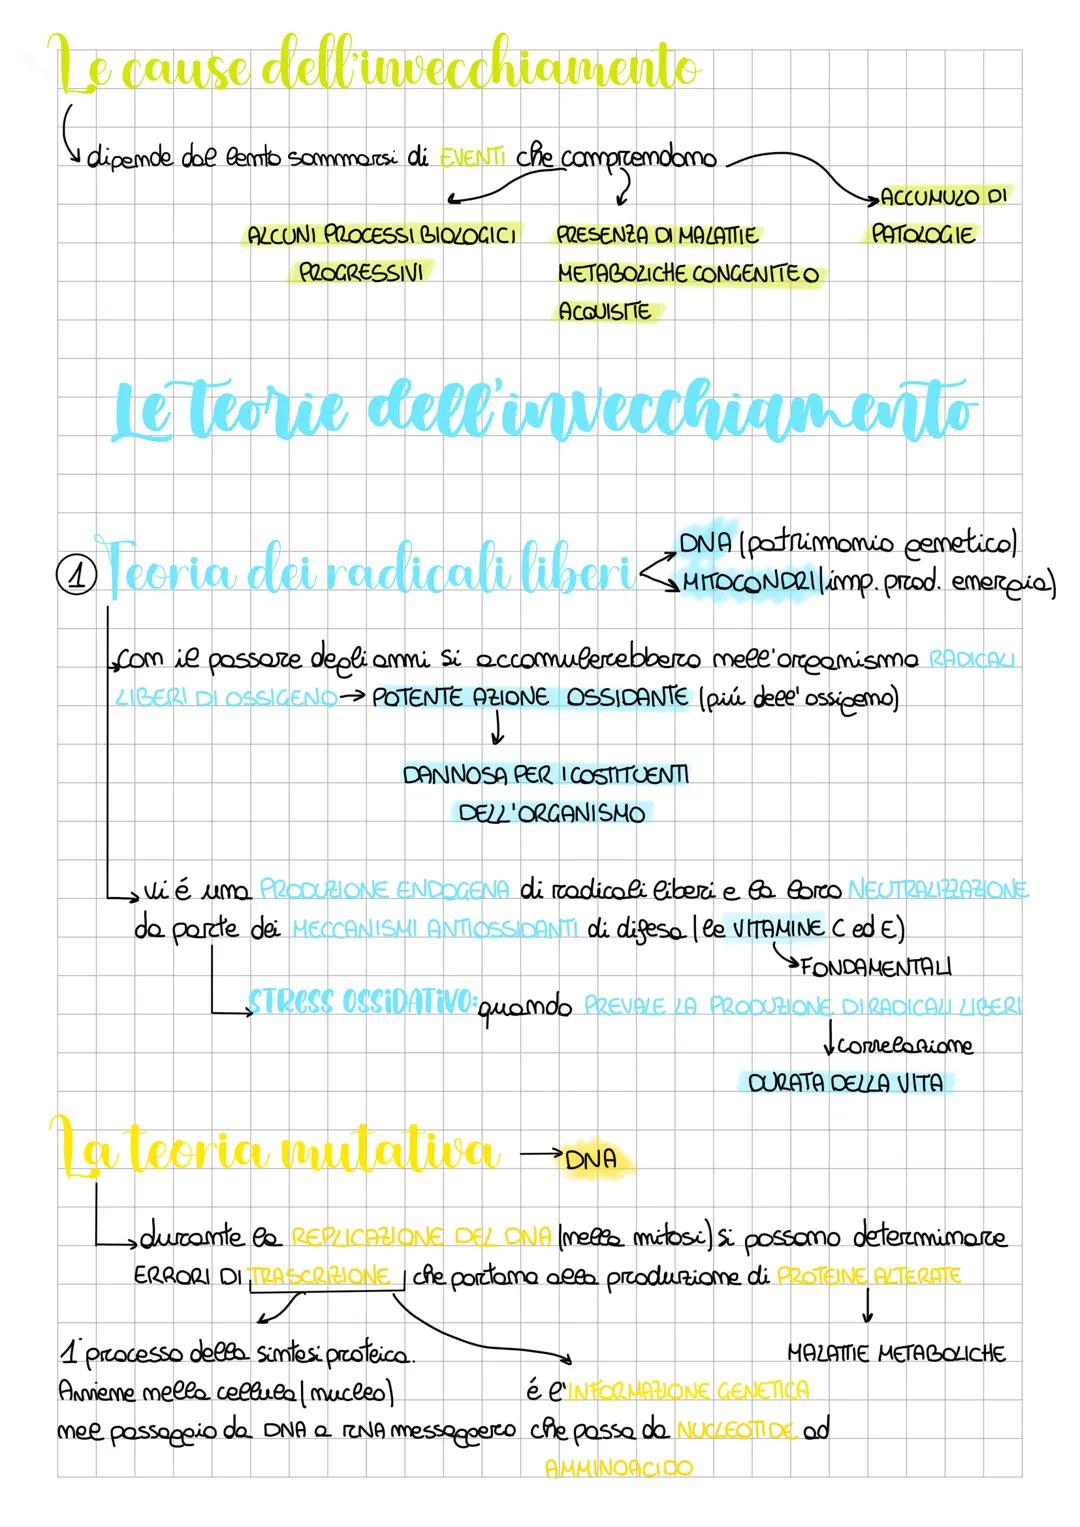 Le cause dell'invecchiamento
dipende dal lento sommarsi di EVENTI che comprendono
ACCUMULO DI
ALCUNI PROCESSI BIOLOGICI PRESENZA DI MALATTIE PATOLOGIE
PROGRESSIVI METABOLICHE CONGENITE O
ACQUISITE
Le teorie dell'invecchiamento
DNA (patrimonio genetico)
1 Teoria dei radicali liberi
MITOCONDRI (imp. prod. energia)
con il passare degli anni si accumulerebbero nell'organismo RADICALI
LIBERI DI OSSIGENO → POTENTE AZIONE OSSIDANTE (piú dell'ossigeno)
DANNOSA PER I COSTITUENTI
DELL'ORGANISMO
vi é una PRODUZIONE ENDOGENA di radicali liberi e la loro NEUTRALIZZAZIONE
da parte dei MECCANISMI ANTIOSSIDANTI di difesa (le VITAMINE C ed E)
FONDAMENTALI
STRESS OSSIDATIVO: quando PREVALE LA PRODUZIONE DI RADICALI LIBERI
correlazione
DURATA DELLA VITA
La teoria mutativa → DNA
durante la REPLICAZIONE DEL DNA (nella mitosi) si possono determinare
ERRORI DI TRASCRIZIONE, che portano alla produzione di PROTEINE ALTERATE
1° processo della sintesi proteica. MALATTIE METABOLICHE
Avviene nella cellula (nucleo) é l'INFORMAZIONE GENETICA
nel passaggio da DNA a RNA messaggero che passa da NUCLEOTIDE ad
AMMINOACIDO